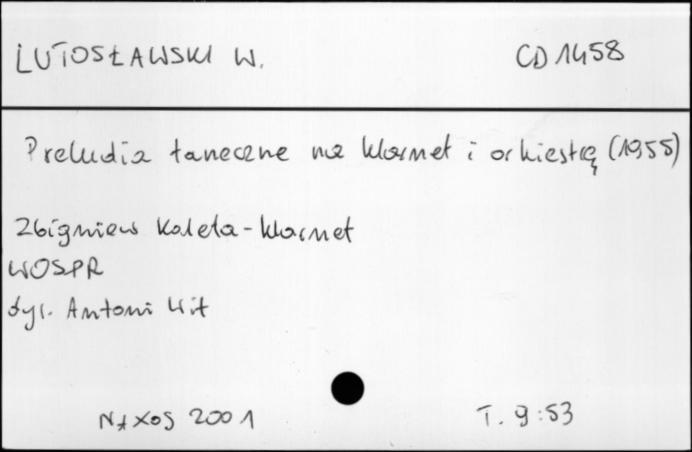 LUTOSŁAWSKI W. CD 1458
Preludia taneczne na klarnet i orkiestrę (1955)
Zbigniew Kaleta - klarnet
WOSPR
dyr. Antoni Wit
NAXOS 2001 T. 9:53